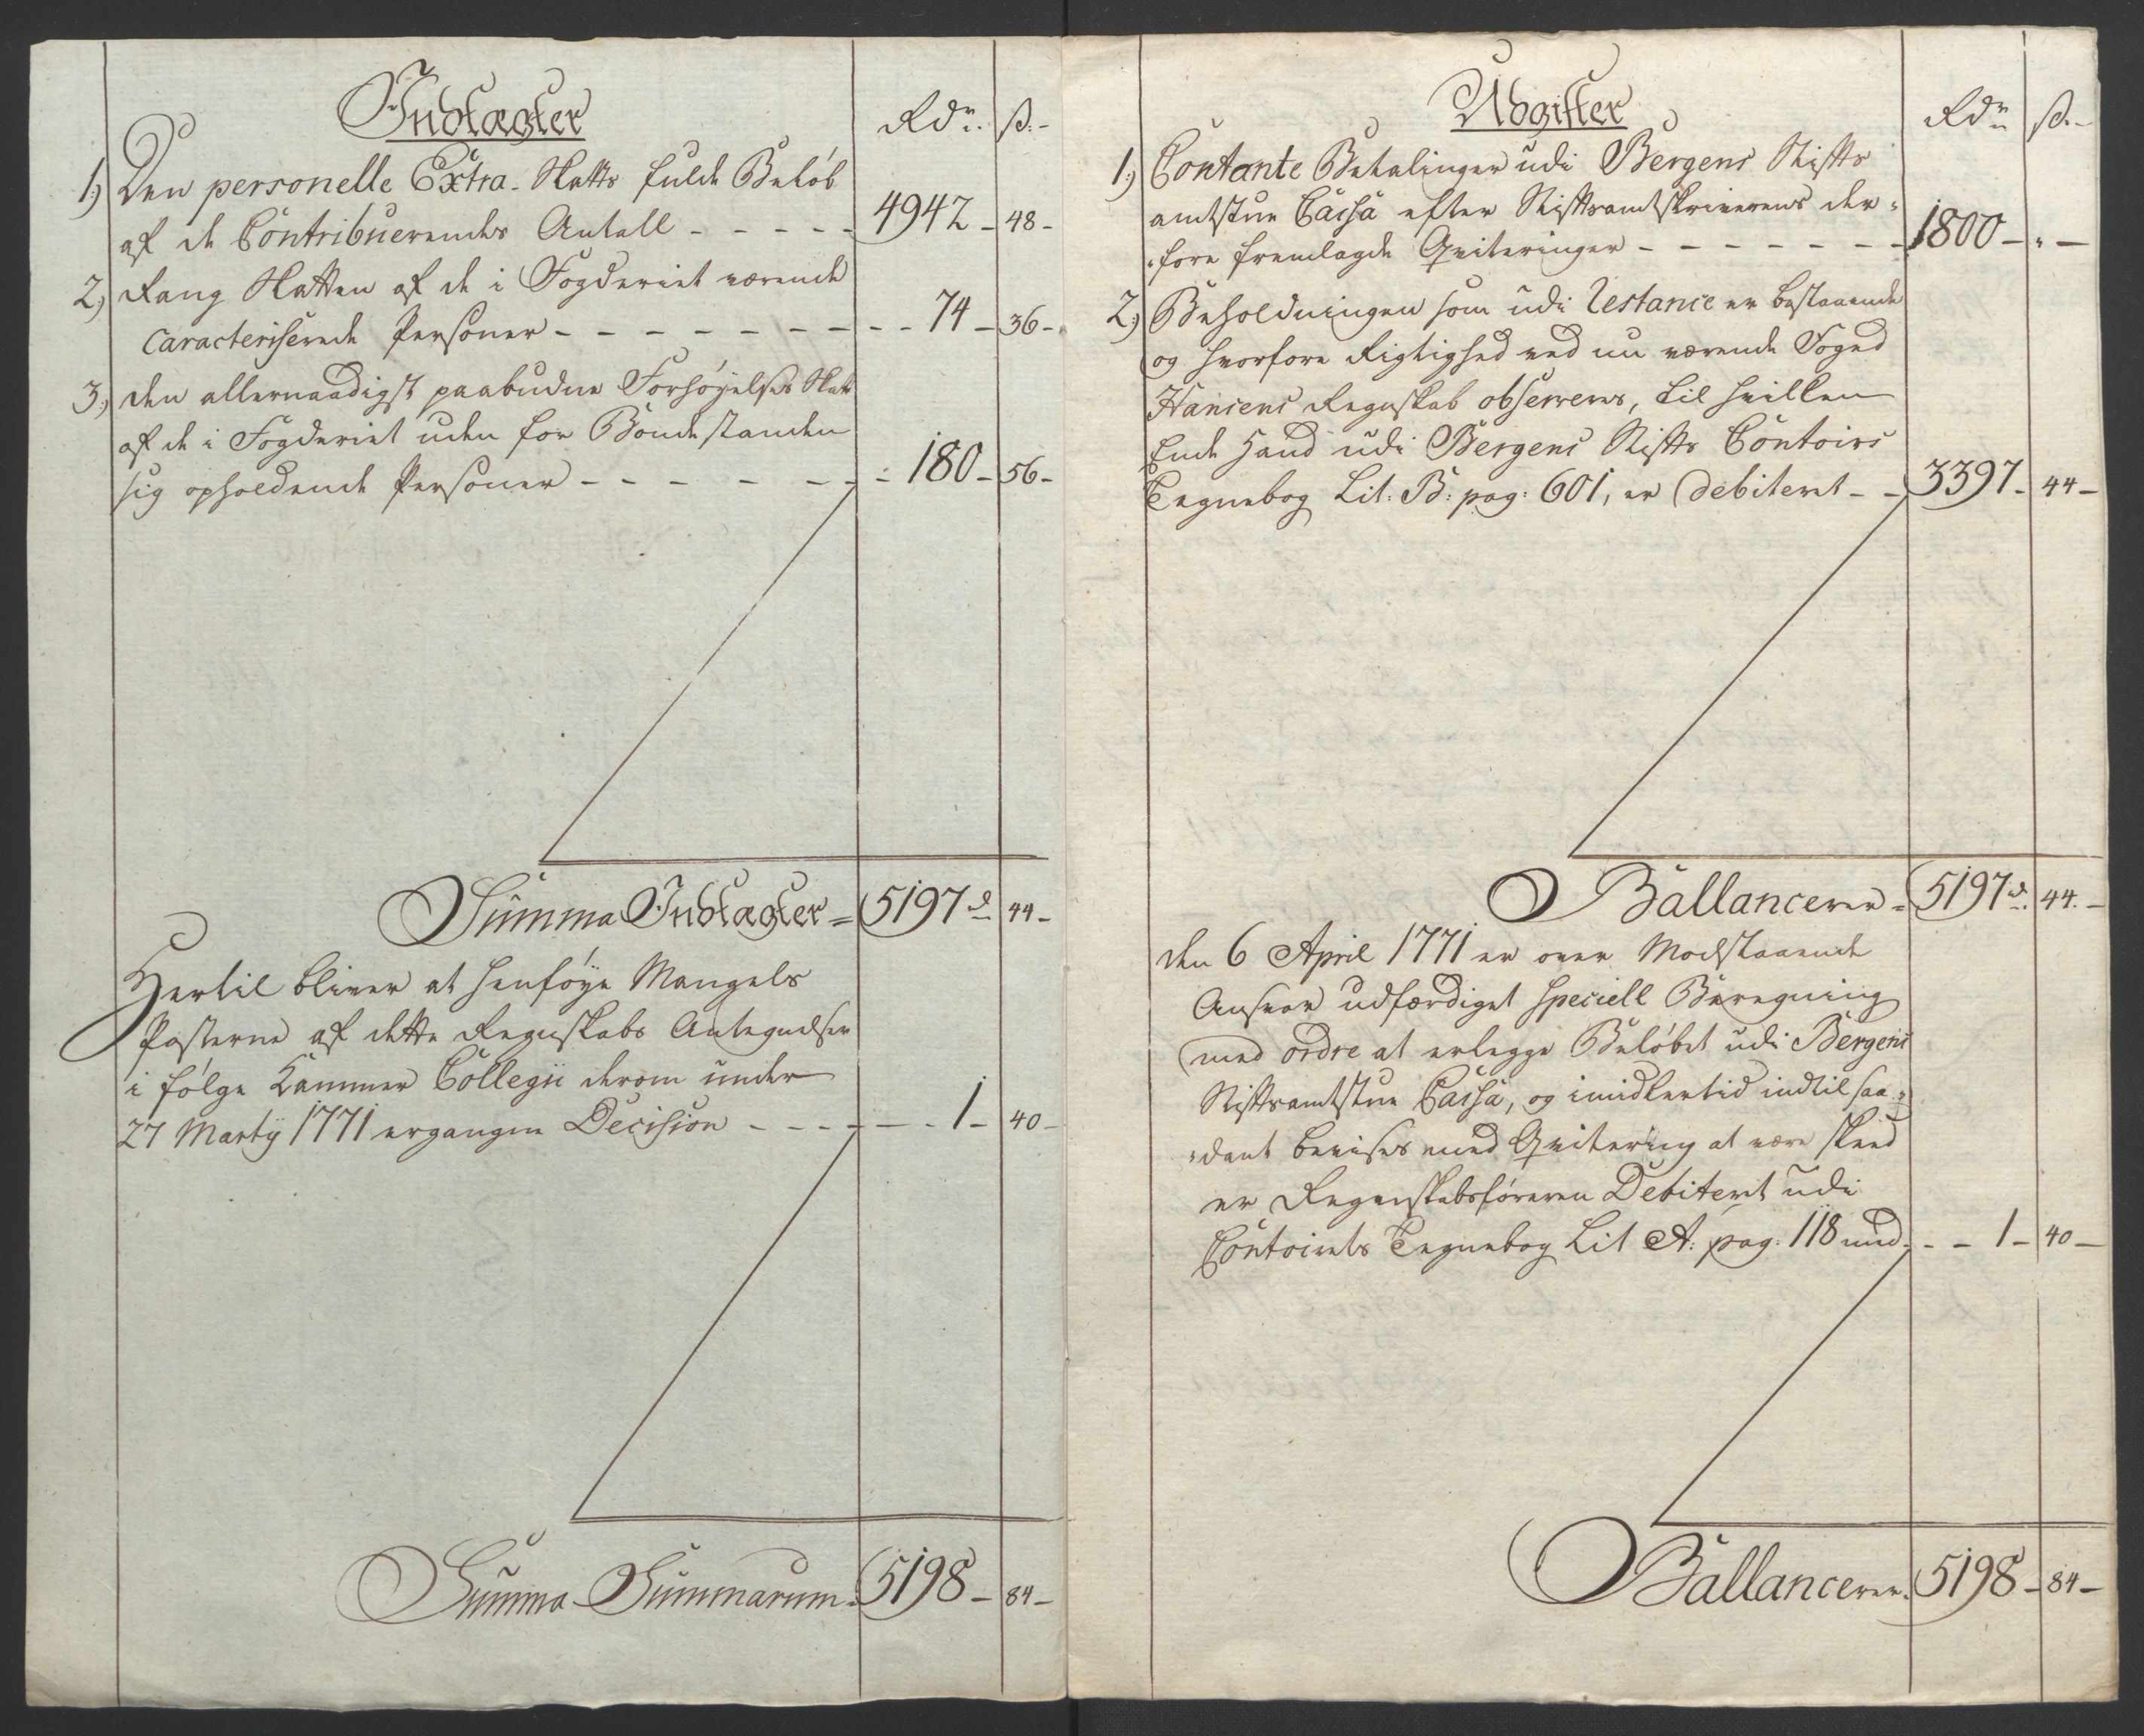 Indtægter
Rdr. ß.
1.) Den personelle Extra-Skatts fulde Beløb
af de Contribuerendes Antall - - - - - 4942 - 48 -
2.) Rang Skatten af de i Fogderiet værende
Caracteriserede Personer - - - - - - - - - 74 - 36 -
3.) den allernaadigst paabudne Forhøyelses Skatt
af de i Fogderiet uden for Bondestanden
sig opholdende Personer - - - - - - - 180 - 56 -
Summa Indtægter = 5197 d 44 -
Hertil bliver at henføye Mangels
Posterne af dette Regnskabs Antegnelser
i følge Kammer Collegii derom under
27 Martij 1771 ergangne Decision - - - - - - 1 - 40 -
Summa Summarum. 5198 - 84 -
Udgifter
Rdr. ß. -
1.) Contante Betalinger udi Bergens Stifts
amtstue Cassa efter Stiftsamtskriverens der-
"fore fremlagde Qviteringer - - - - - - - 1800 - " -
2.) Beholdningen som udi Restance er bestaaende
og hvorfore Rigtighed ved nu værende Foged
Hansens Regnskab observeres, til hvilken
Ende Hand udi Bergens Stifts Contoirs
Tegnebog Lit: B: pag: 601, er debiteret - - 3397 - 44 -
Ballancerer = 5197 d. 44. -
den 6 April 1771 er over Modstaaende
Ansvar udfærdiget speciell Beregning
med ordre at erlegge Beløbet udi Bergens
Stiftsamtstue Cassa, og imidlertid indtil saa-
"dant bevises med Qvitering at være skeed
er Regnskabsføreren Debiteret udi
Contoirets Tegnebog Lit A: pag: 118 med. - - 1 - 40 -
Ballancerer. 5198 - 84 -